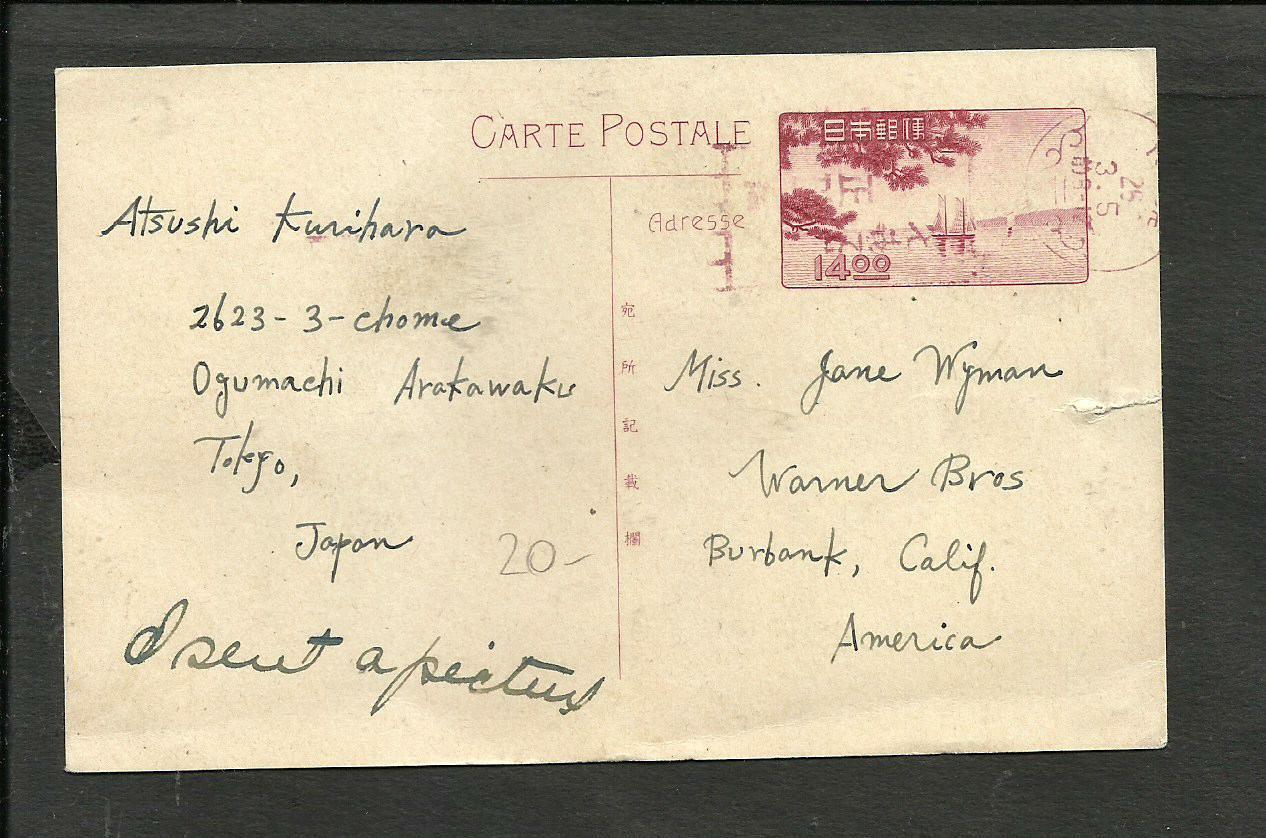 CARTE POSTALE
日本郵便
14 00
3.5
25.
Adresse
宛所記載欄
Atsushi Kurihara
2623-3-chome
Ogumachi Arakawaku
Tokyo,
Japan
20-
I sent a picture
Miss. Jane Wyman
Warner Bros
Burbank, Calif.
America